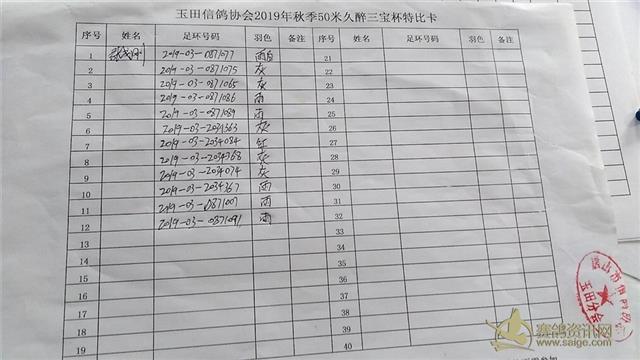 玉田信鸽协会2019年秋季50米久醉三宝杯特比卡
序号 姓名 足环号码 羽色 备注 序号 姓名 足环号码 羽色 备注
1 2019-03-0871077 雨白 21
2 2019-03-0871075 灰 22
3 2019-03-0871065 灰 23
4 2019-03-0871086 雨 24
5 2019-03-0871089 雨 25
6 2019-03-2034363 灰 26
7 2019-03-2034084 红 27
8 2019-03-2034368 灰 28
9 2019-03-2034074 灰 29
10 2019-03-2034367 雨 30
11 2019-03-0871007 雨 31
12 2019-03-0871091 雨 32
13 33
14 34
15 35
16 36
17 37
18 38
19 39
40
玉田分会
赛鸽资讯网
www.saige.com